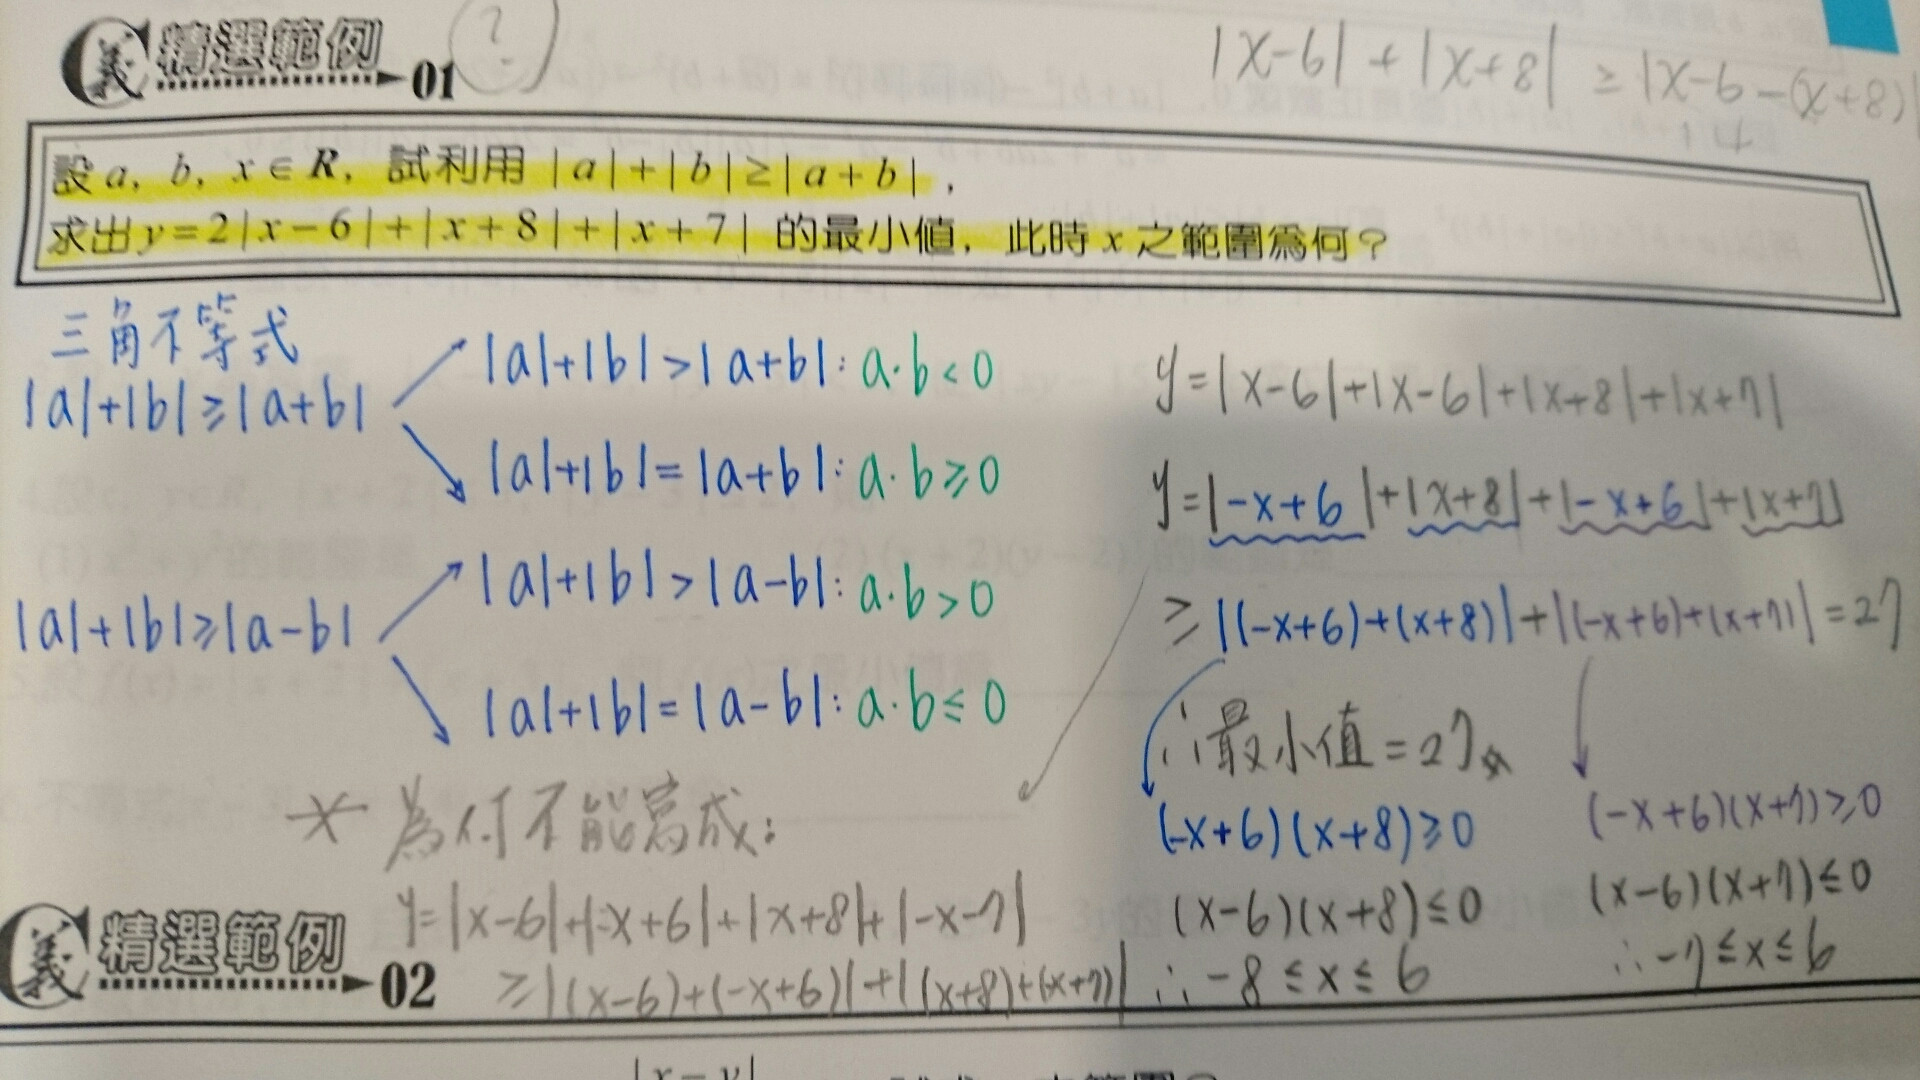 精選範例 01 ?
|x-6|+|x+8| ≥ |x-6-(x+8)|
設 a, b, x ∈ R, 試利用 |a|+|b|≥|a+b|,
求出 y=2|x-6|+|x+8|+|x+7| 的最小值, 此時 x 之範圍為何?
三角不等式
|a|+|b|≥|a+b|
|a|+|b|>|a+b|: a·b<0
|a|+|b|=|a+b|: a·b≥0
|a|+|b|≥|a-b|
|a|+|b|>|a-b|: a·b>0
|a|+|b|=|a-b|: a·b≤0
y=|x-6|+|x-6|+|x+8|+|x+7|
y=|-x+6|+|x+8|+|-x+6|+|x+7|
≥|(-x+6)+(x+8)|+|(-x+6)+(x+7)|=27
∴最小值=27
(-x+6)(x+8)≥0
(x-6)(x+8)≤0
∴-8≤x≤6
(-x+6)(x+7)≥0
(x-6)(x+7)≤0
∴-7≤x≤6
為何不能寫成:
y=|x-6|+|-x+6|+|x+8|+|-x-7|
≥|(x-6)+(-x+6)|+|(x+8)+(x+7)|
精選範例 02
|x-y|